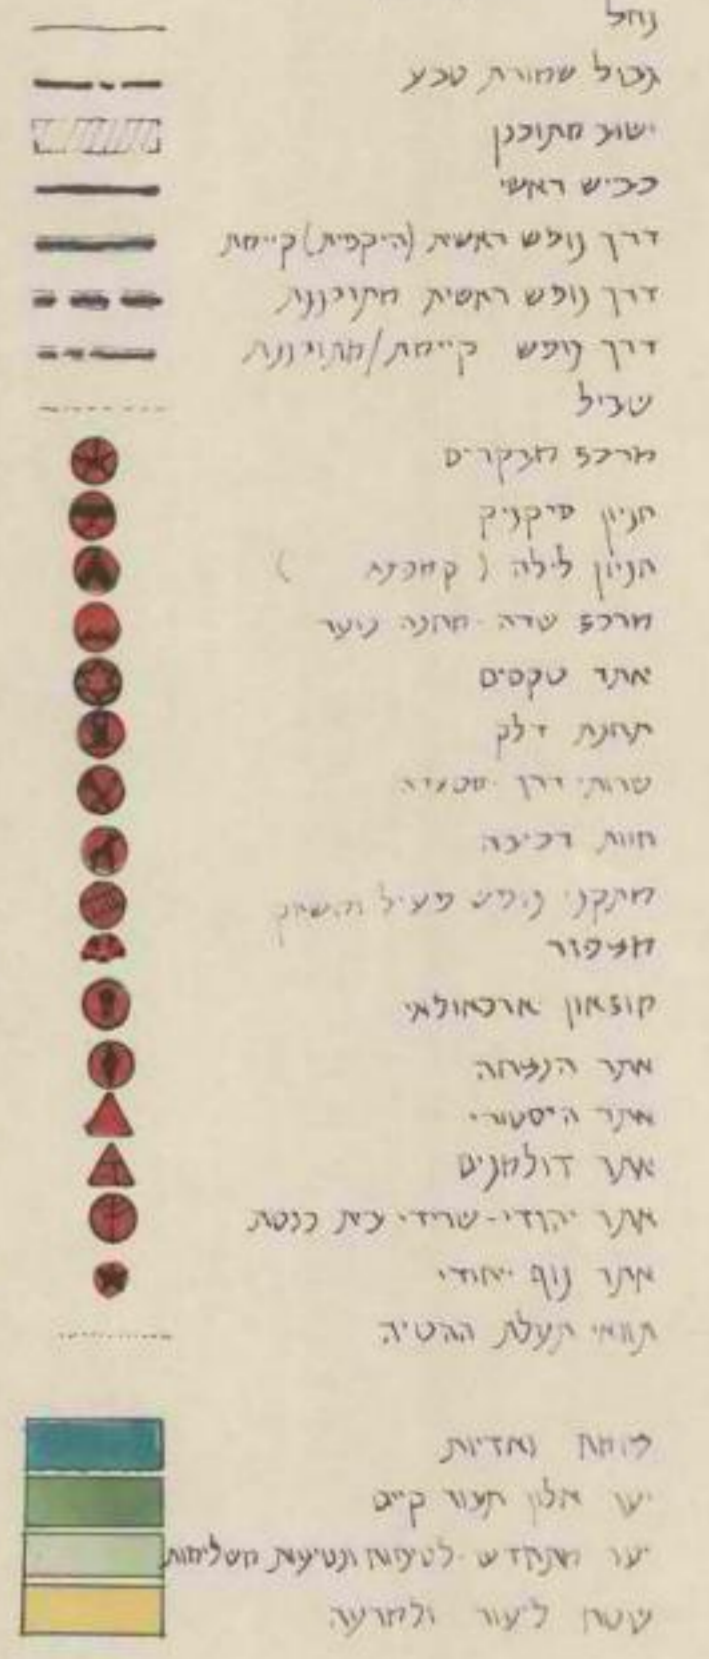 נחל
גבול שמורת טבע
ישוב מתוכנן
כביש ראשי
דרך נופש ראשית (היקפית) קיימת
דרך נופש ראשית מתוכננת
דרך נופש קיימת/מתוכננת
שביל
מרכז מבקרים
חניון פיקניק
חניון לילה ( קמפינג )
מרכז שדה - מחנה נוער
אתר טקסים
תחנת דלק
שרותי דרך - מסעדה
חוות רכיבה
מתקני נופש פעיל ומשחק
מצפור
מוזאון ארכאולוגי
אתר הנצחה
אתר היסטורי
אתר דולמנים
אתר יהודי - שרידי בית כנסת
אתר נוף יחודי
תוואי תעלת ההטיה
ואדיות
יער אלון תבור קיים
יער מתחדש - לטיפוח ונטיעות משלימות
שטח ליעור ולמרעה